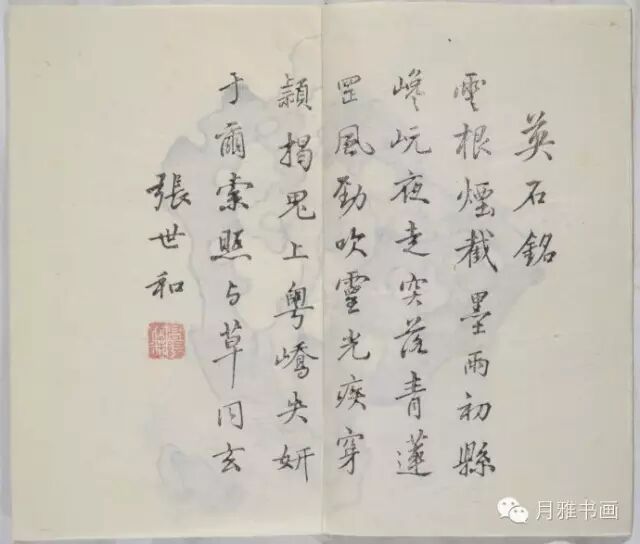 英石銘
雲根煙截墨雨初縣
巉岏夜走突落青蓮
罡風勁吹靈光疾穿
穎揭鬼上粵嶠失妍
于爾索照与草同玄
張世和
月雅书画